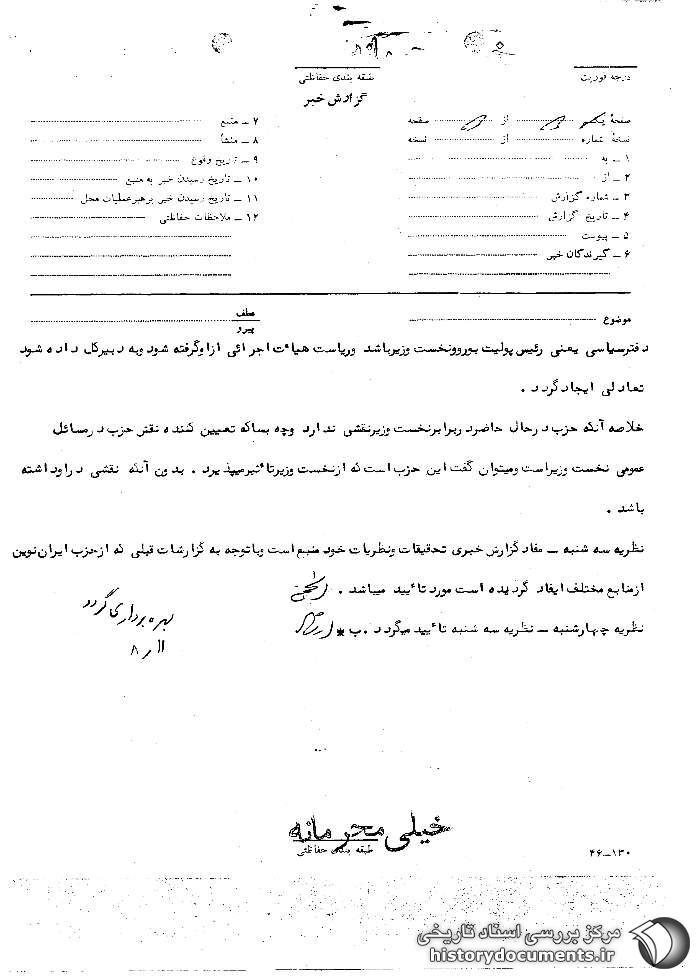 درجه فوریت
طبقه بندی حفاظتی
گزارش خبر
صفحهٔ یک از صفحه
نسخهٔ شماره از نسخه
۱ ــ به
۲ ــ از
۳ ــ شماره گزارش
۴ ــ تاریخ گزارش
۵ ــ پیوست
۶ ــ گیرندگان خبر
۷ ــ منبع
۸ ــ منشأ
۹ ــ تاریخ وقوع
۱۰ ــ تاریخ رسیدن خبر به منبع
۱۱ ــ تاریخ رسیدن خبر برهبر عملیات محل
۱۲ ــ ملاحظات حفاظتی
موضوع
عطف
پیرو
دفترسیاسی یعنی رئیس پولیت بورو نخست وزیرباشد وریاست هیات اجرائی ازاوگرفته شود وبه دبیرکل داده شود
تعادلی ایجادگردد .
خلاصه آنکه حزب درحال حاضر دربرابرنخست وزیرنقشی ندارد وچه بساکه تعیین کننده نقش حزب درمسائل
عمومی نخست وزیراست ومیتوان گفت این حزب است که ازنخست وزیرتاثیرمیپذیرد . بدون آنکه نقشی دراوداشته
باشد .
نظریه سه شنبه ــ مفادگزارش خبری تحقیقات ونظریات خود منبع است وباتوجه به گزارشات قبلی که ازحزب ایران نوین
ازمنابع مختلف ایفاد گردیده است مورد تائید میباشد .
نظریه چهارشنبه ــ نظریه سه شنبه تائید میگردد .ب *
بهره برداری گردد
۱۱ر۸
خیلی محرمانه
طبقه بندی حفاظتی
۴۶ــ۱۳۰
مرکز بررسی اسناد تاریخی
historydocuments.ir